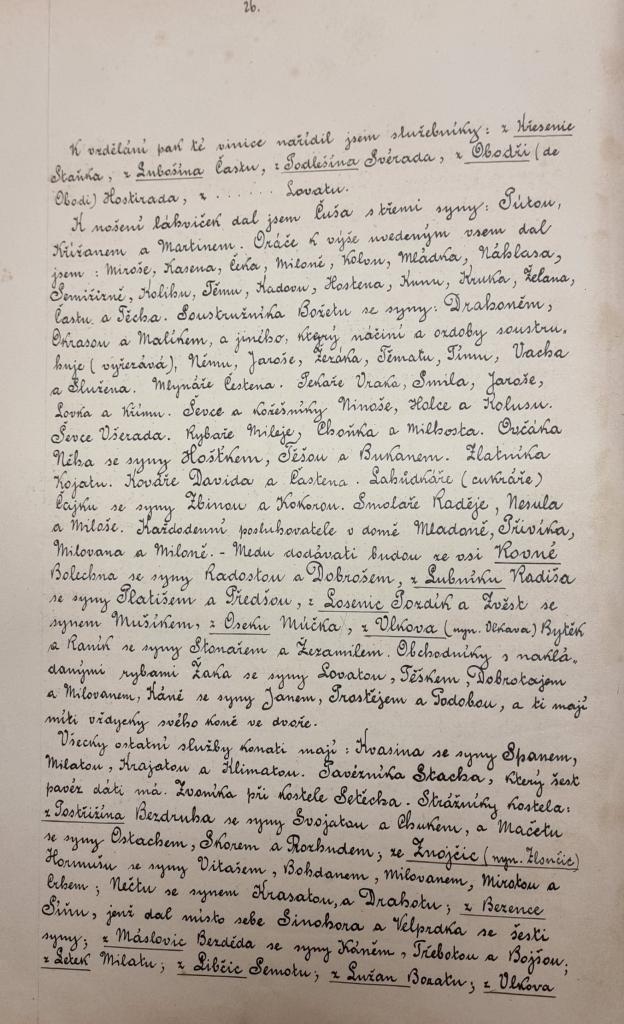 26.
K vzdělání pak té vinice nařídil jsem služebníky: z Křesenic
Staňka, z Lubošína Častu, z Podlešína Svérada, z Obodři (de
Obodi) Hostirada, z . . . . . . Lovatu.
K nošení láhviček dal jsem Čuša s třemi syny: Pútou,
Křížanem a Martinem. Oráče k výše uvedeným vsem dal
jsem: Miroše, Kasena, Čeka, Miloně, Kolvu, Mládka, Náhlasa,
Semižirně, Kolihu, Těmu, Radovu, Hostena, Kunu, Kruka, Želana,
Častu a Těcha. Soustružníka Božetu se syny: Drahoněm,
Okrasou a Malíkem, a jiného, který náčiní a ozdoby soustru-
huje (vyřezává), Němu, Jaroše, Žeráka, Tématu, Tímu, Vacha
a Služena. Mlynáře Čestena. Pekaře Vraka, Smila, Jaroše,
Lovka a Křimu. Ševce a kožešníky Ninoše, Halce a Kolusu.
Ševce Všerada. Rybaře Mileje, Choňka a Milhosta. Ovčáka
Něha se syny Hoštkem, Těšou a Bukanem. Zlatníka
Kojatu. Kováře Davida a Častena. Lahůdkáře (cukráře)
Čájku se syny Zbinou a Kokorou. Smolaře Raděje, Nesula
a Miloše. Každodenní posluhovatele v domě Mladoně, Přivíka,
Milovana a Miloně. - Medu dodávati budou ze vsi Rovné
Bolechna se syny Radostou a Dobrošem, z Lubníku Radiša
se syny Platišem a Předšou, z Losenic Pozdík a Zvěst se
synem Mušíkem, z Oseku Múčka, z Vlkova (nyn. Vlkava) Bytěk
a Raník se syny Stonařem a Žezamilem. Obchodníky s naklá-
danými rybami Žaka se syny Lovatou, Těškem, Dobrotajem
a Milovanem, Káně se syny Janem, Prostějem a Podobou, a ti mají
míti vždycky svého koně ve dvoře.
Všecky ostatní služby konati mají: Kvasina se syny Spanem,
Milatou, Krajatou a Klimatou. Pavézníka Stacha, který šest
pavéz dáti má. Zvoníka při kostele Setěcha. Strážníky kostela:
z Postřižína Bezdruha se syny Svojatou a Chukem, a Mačetu
se syny Ostachem, Skorem a Rozhudem; ze Znojčic (nyn. Zlončic)
Hormušu se syny Vitašem, Bohdanem, Milovanem, Mirotou a
Crhem; Nečtu se synem Krasatou, a Drahotu; z Bezence
Síňu, jenž dal místo sebe Sinohora a Velprdka se šesti
syny; z Máslovic Bezděda se syny Káněm, Třebotou a Bojšou;
z Letek Milatu; z Libčic Semotu; z Lužan Boratu; z Vlkova